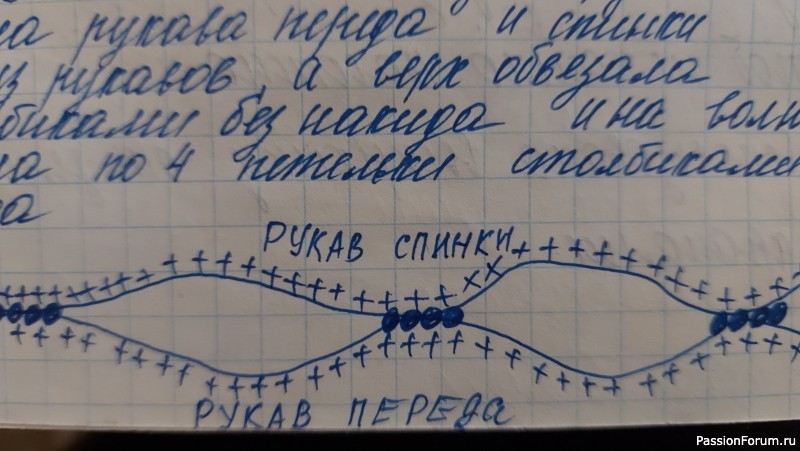 на рукава переда и спинки
из рукавов, а верх обвезала
биками без накида и на волн
ла по 4 петельки столбиками
ла
РУКАВ СПИНКИ
РУКАВ ПЕРЕДА
PassionForum.ru